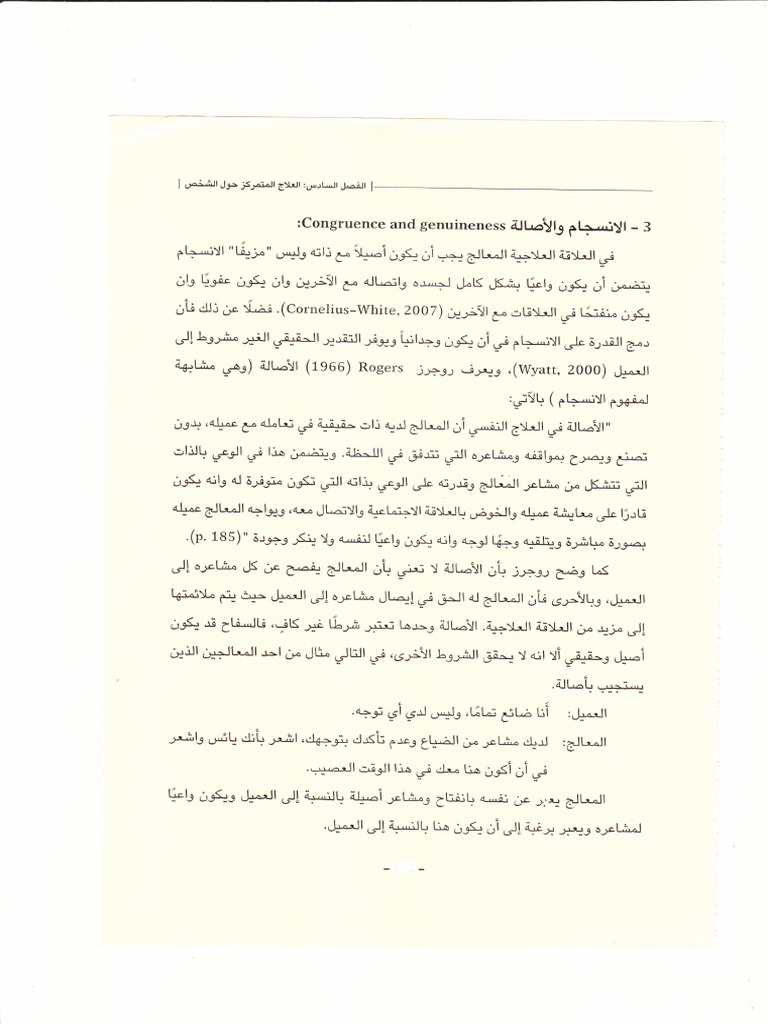 | الفصل السادس: العلاج المتمركز حول الشخص |
3 – الانسجام والأصالة Congruence and genuineness:
في العلاقة العلاجية المعالج يجب أن يكون أصيلاً مع ذاته وليس "مزيفًا" الانسجام
يتضمن أن يكون واعيًا بشكل كامل لجسده واتصاله مع الآخرين وان يكون عفويًا وان
يكون منفتحًا في العلاقات مع الآخرين (Cornelius–White, 2007). فضلًا عن ذلك فأن
دمج القدرة على الانسجام في أن يكون وجدانياً ويوفر التقدير الحقيقي الغير مشروط إلى
العميل (Wyatt, 2000)، ويعرف روجرز Rogers (1966) الأصالة (وهي مشابهة
لمفهوم الانسجام ) بالآتي:
"الأصالة في العلاج النفسي أن المعالج لديه ذات حقيقية في تعامله مع عميله، بدون
تصنع ويصرح بمواقفه ومشاعره التي تتدفق في اللحظة. ويتضمن هذا في الوعي بالذات
التي تتشكل من مشاعر المعالج وقدرته على الوعي بذاته التي تكون متوفرة له وانه يكون
قادرًا على معايشة عميله والخوض بالعلاقة الاجتماعية والاتصال معه، ويواجه المعالج عميله
بصورة مباشرة ويتلقيه وجهًا لوجه وانه يكون واعيًا لنفسه ولا ينكر وجودة "(p. 185).
كما وضح روجرز بأن الأصالة لا تعني بأن المعالج يفصح عن كل مشاعره إلى
العميل، وبالأحرى فأن المعالج له الحق في إيصال مشاعره إلى العميل حيث يتم ملائمتها
إلى مزيد من العلاقة العلاجية. الأصالة وحدها تعتبر شرطًا غير كافٍ، فالسفاح قد يكون
أصيل وحقيقي ألا انه لا يحقق الشروط الأخرى، في التالي مثال من احد المعالجين الذين
يستجيب بأصالة.
العميل: أنا ضائع تمامًا، وليس لدي أي توجه.
المعالج: لديك مشاعر من الضياع وعدم تأكدك بتوجهك، اشعر بأنك يائس واشعر
في أن أكون هنا معك في هذا الوقت العصيب.
المعالج يعبر عن نفسه بانفتاح ومشاعر أصيلة بالنسبة إلى العميل ويكون واعيًا
لمشاعره ويعبر برغبة إلى أن يكون هنا بالنسبة إلى العميل.
- -